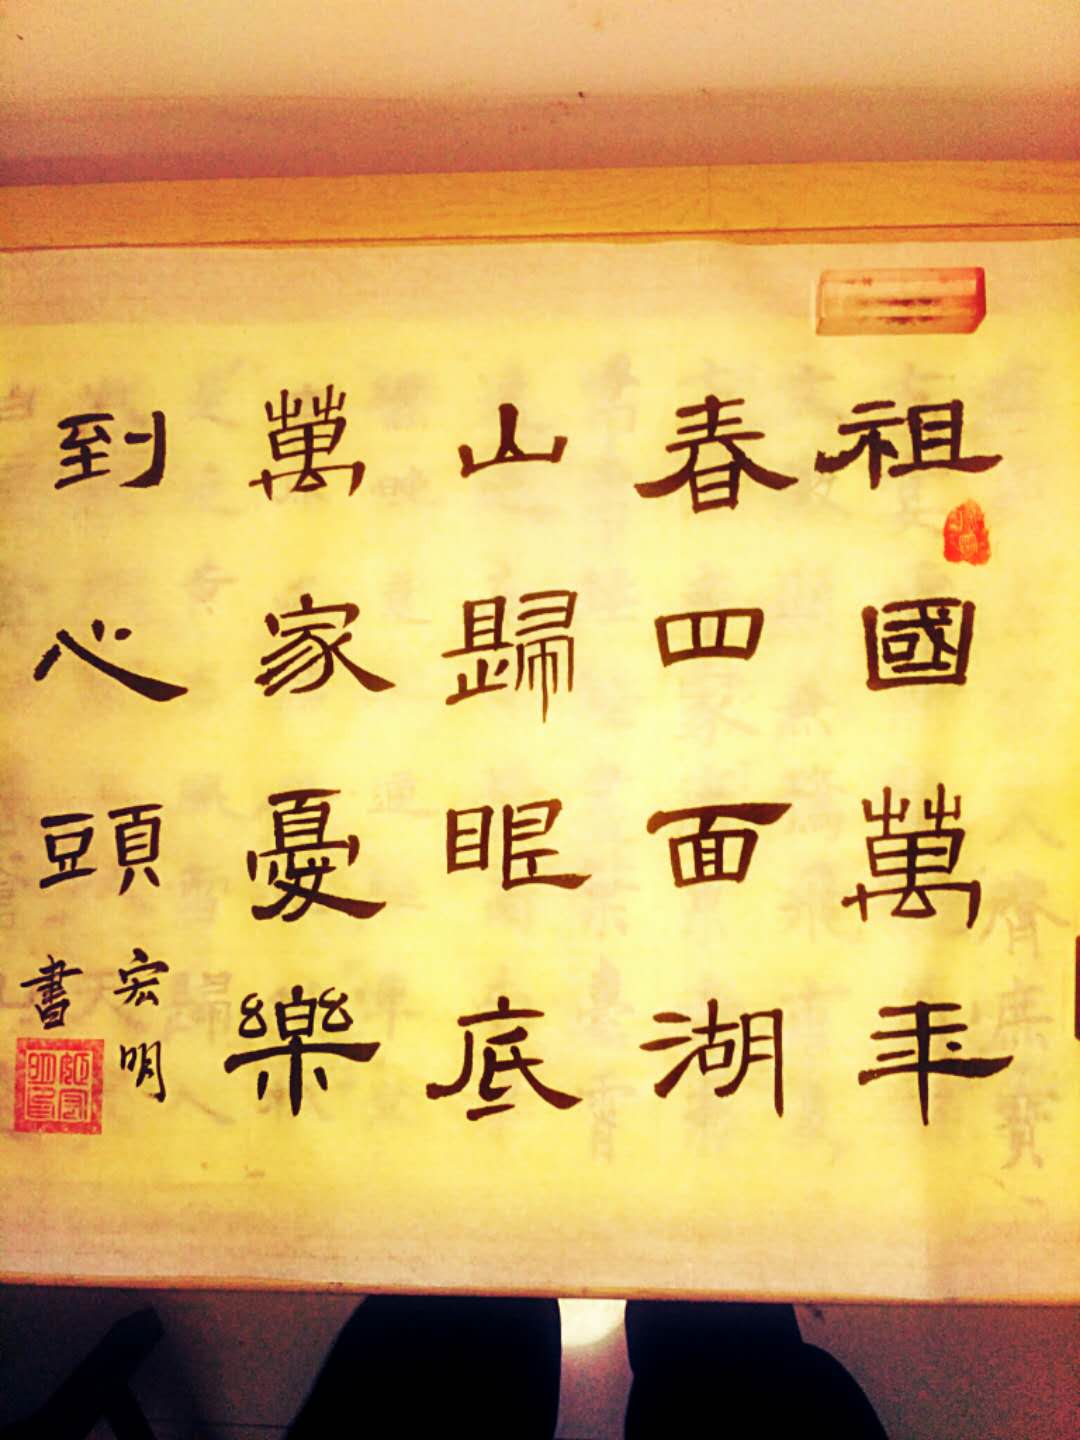 祖國萬年
春四面湖
山歸眼底
萬家憂樂
到心頭
宏明
書